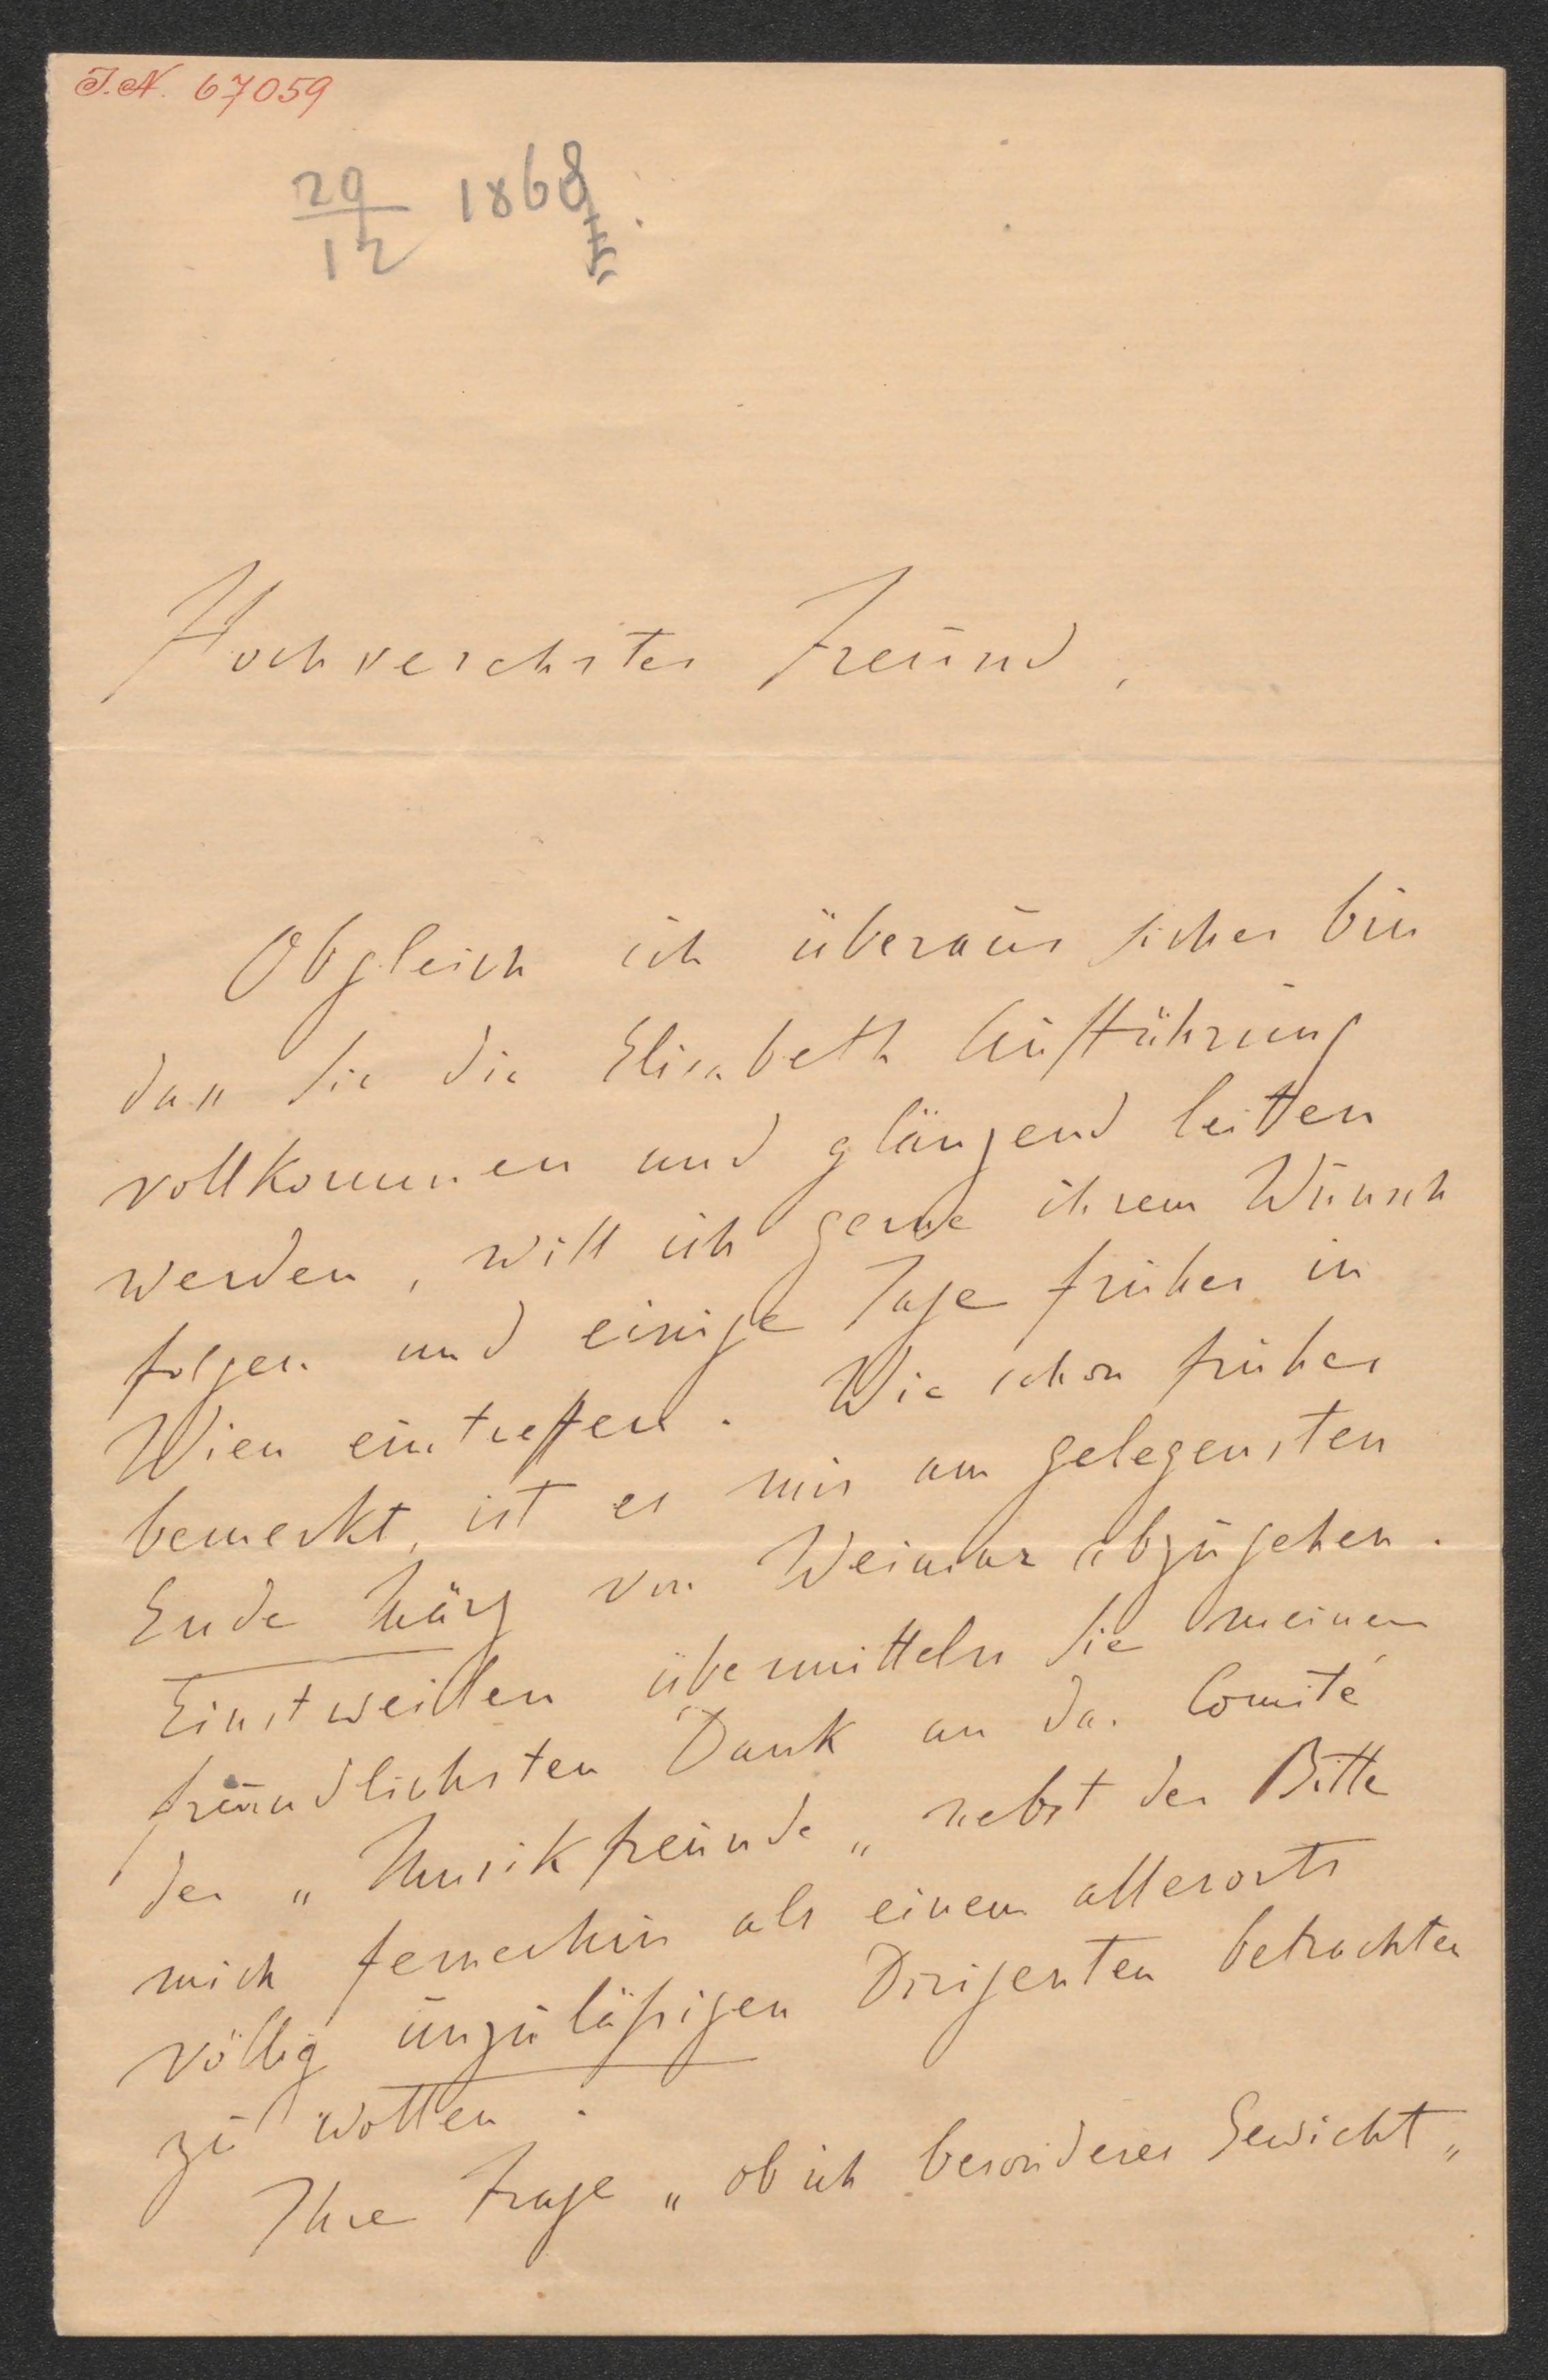 I.N. 67059
29
12 1868
Hochverehrter Freund,
Obgleich ich überaus sicher bin
dass Sie die Elisabeth Aufführung
vollkommen und glänzend leiten
werden, will ich gerne ihrem Wunsch
folgen und einige Tage früher in
Wien eintreffen. Wie schon früher
bemerkt, ist es mir am gelegensten
Ende März von Weimar abzugehen.
Einstweillen übermitteln Sie meinen
freundlichsten Dank an das Comité
der „Musikfreunde„ nebst der Bitte
mich fernerhin als einem allerorts
völlig unzuläßigen Dirigenten betrachten
zu wollen.
Ihre Frage „ob ich besonderes Gewicht„